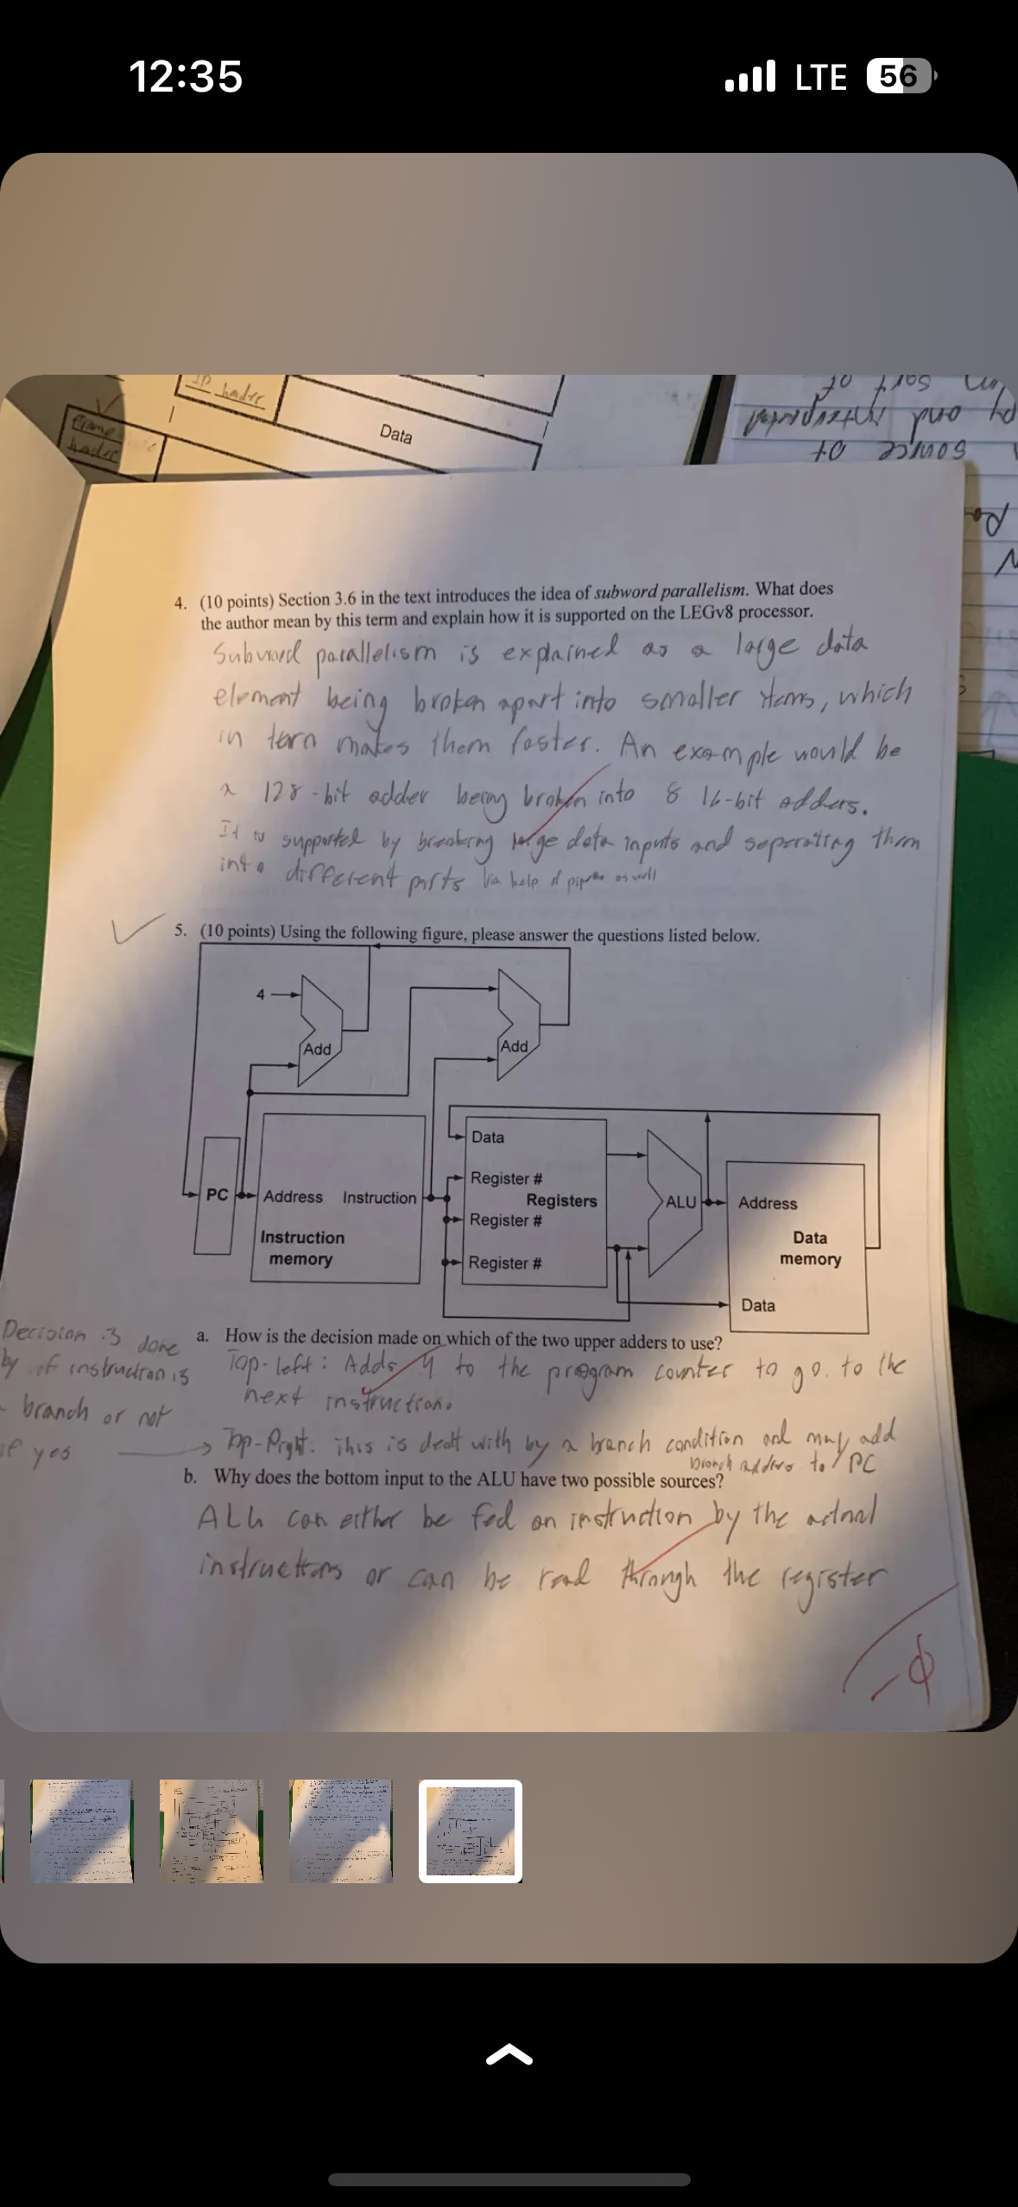 12:35
LTE 56
IP hader
Frame
hader
Data
4. (10 points) Section 3.6 in the text introduces the idea of subword parallelism. What does
the author mean by this term and explain how it is supported on the LEGv8 processor.
Subword parallelism is explained as a large data
element being broken apart into smaller items, which
in tern makes them faster. An example would be
a 128-bit adder being broken into 8 16-bit adders.
It is supported by breaking large data inputs and seperating them
into different parts via help of as well
5. (10 points) Using the following figure, please answer the questions listed below.
4
Add
Add
Data
Register #
PC
Address
Instruction
Registers
ALU
Address
Register #
Instruction
memory
Data
memory
Register #
Data
a. How is the decision made on which of the two upper adders to use?
Decision is done
by if instruction is
branch or not
if yes
Top-left: Adds 4 to the program counter to go to the
next instruction.
Top-Right: This is dealt with by a branch condition and may add
branch address to PC
b. Why does the bottom input to the ALU have two possible sources?
ALU can either be fed an instruction by the actual
instructions or can be read through the register